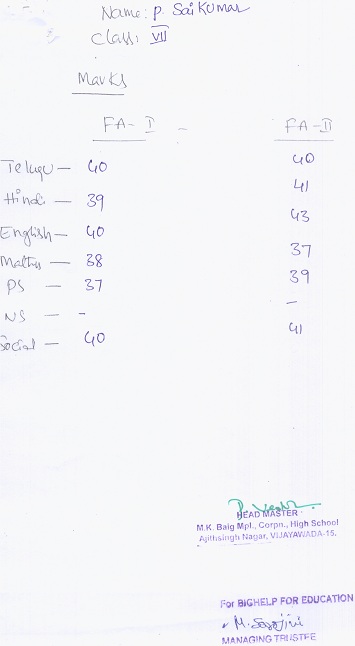 Name: P. Sai Kumar
Class: VII
Marks
FA-I - FA-II
Telugu - 40 40
Hindi - 39 41
English - 40 43
Maths - 38 37
PS - 37 39
NS - - -
Social - 40 41
HEAD MASTER
M.K. Baig Mpl., Corpn., High School
Ajithsingh Nagar, VIJAYAWADA-15.
For BIGHELP FOR EDUCATION
M. Sarojini
MANAGING TRUSTEE